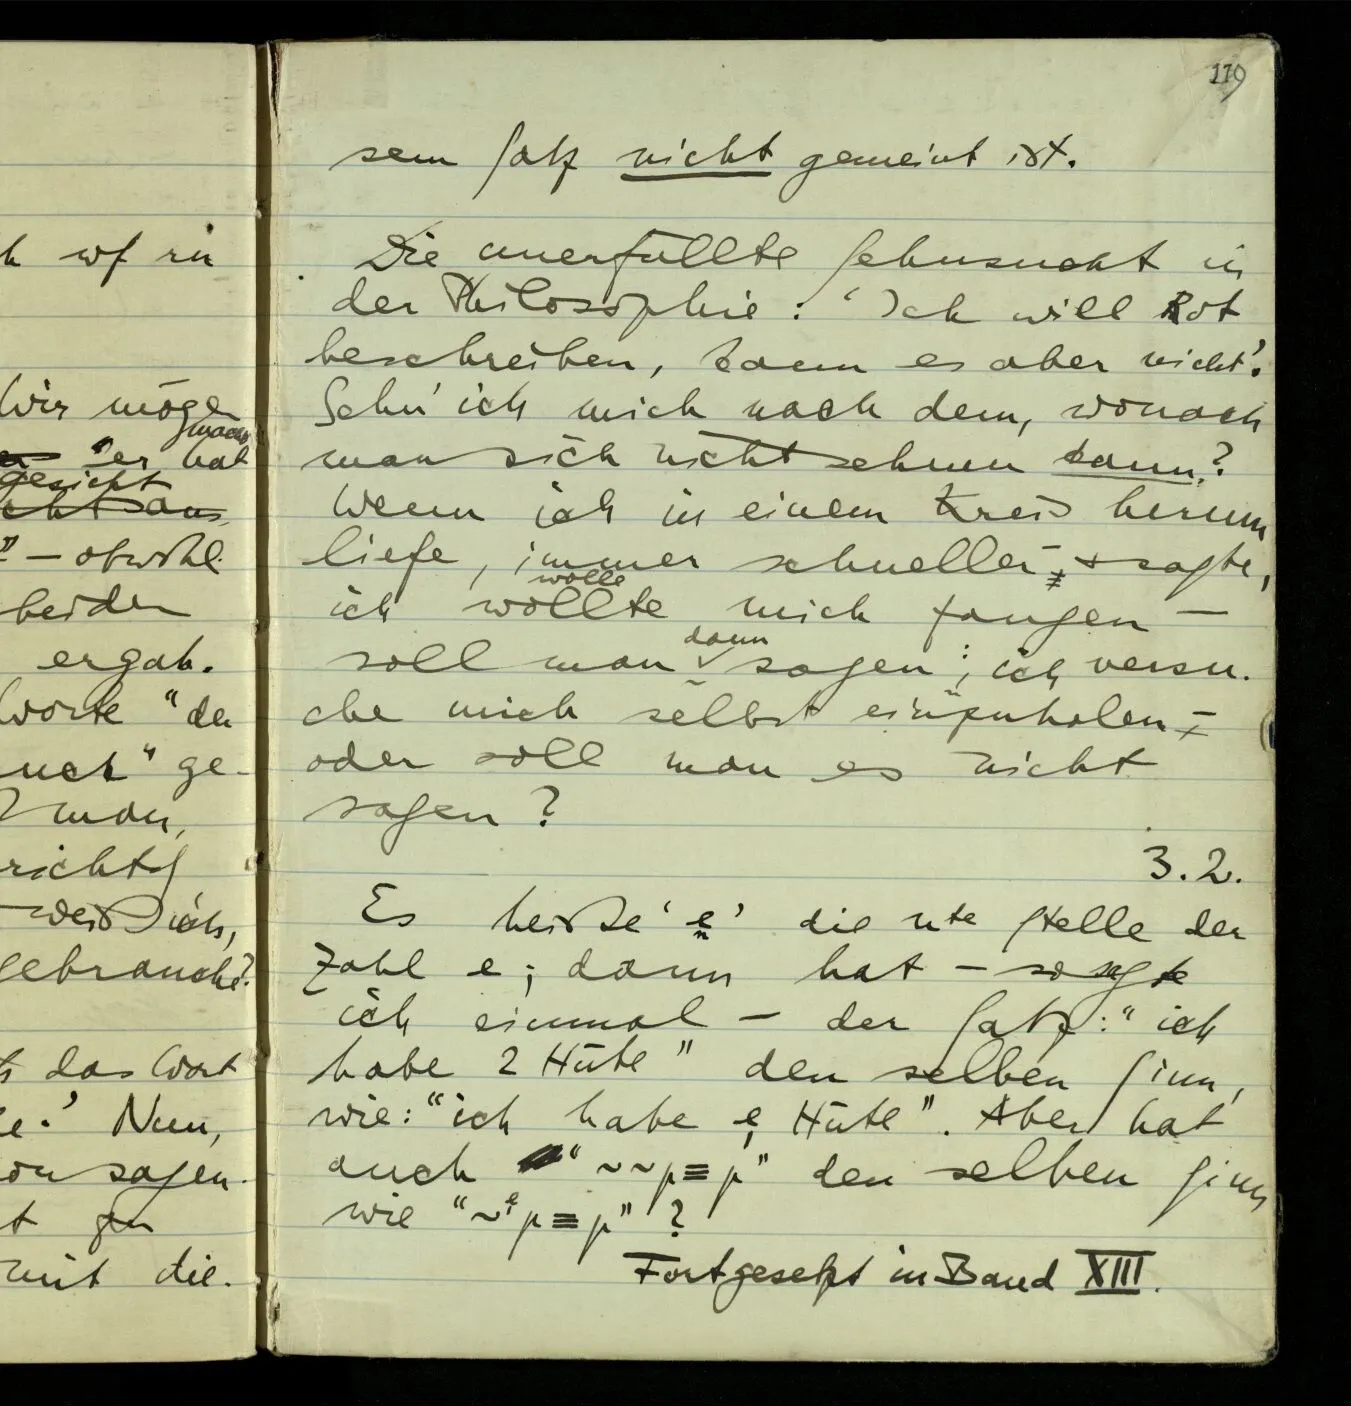 119
sem Satz nicht gemeint ist.
Die unerfüllte Sehnsucht in
der Philosophie: ‘Ich will Rot
beschreiben, kann es aber nicht’.
Sehn' ich mich nach dem, wonach
man sich nicht sehnen kann?
Wenn ich in einem Kreis herum
liefe, immer schneller, + sagte,
wolle
ich wollte mich fangen –
dann
soll man sagen: ich versu-
che mich selbst einzuholen –
oder soll man es nicht
sagen?
3.2.
Es heiße ‘eₙ’ die nte Stelle der
Zahl e; dann hat – sagte
ich einmal – der Satz: “ich
habe 2 Hüte” den selben Sinn,
wie: “ich habe e₁ Hüte”. Aber hat
auch “~~p≡p” den selben Sinn
wie “~ᵉ¹p≡p”?
Fortgesetzt in Band XIII.
h wf in
Wir mögen
machs
“er hat
gesicht
” – obwohl
beiden
ergab.
Worte “der
uch” ge-
man,
richtig
weiß ich,
gebrauche?
das Wort
e.’ Nun,
sagen.
t zu
mit die-